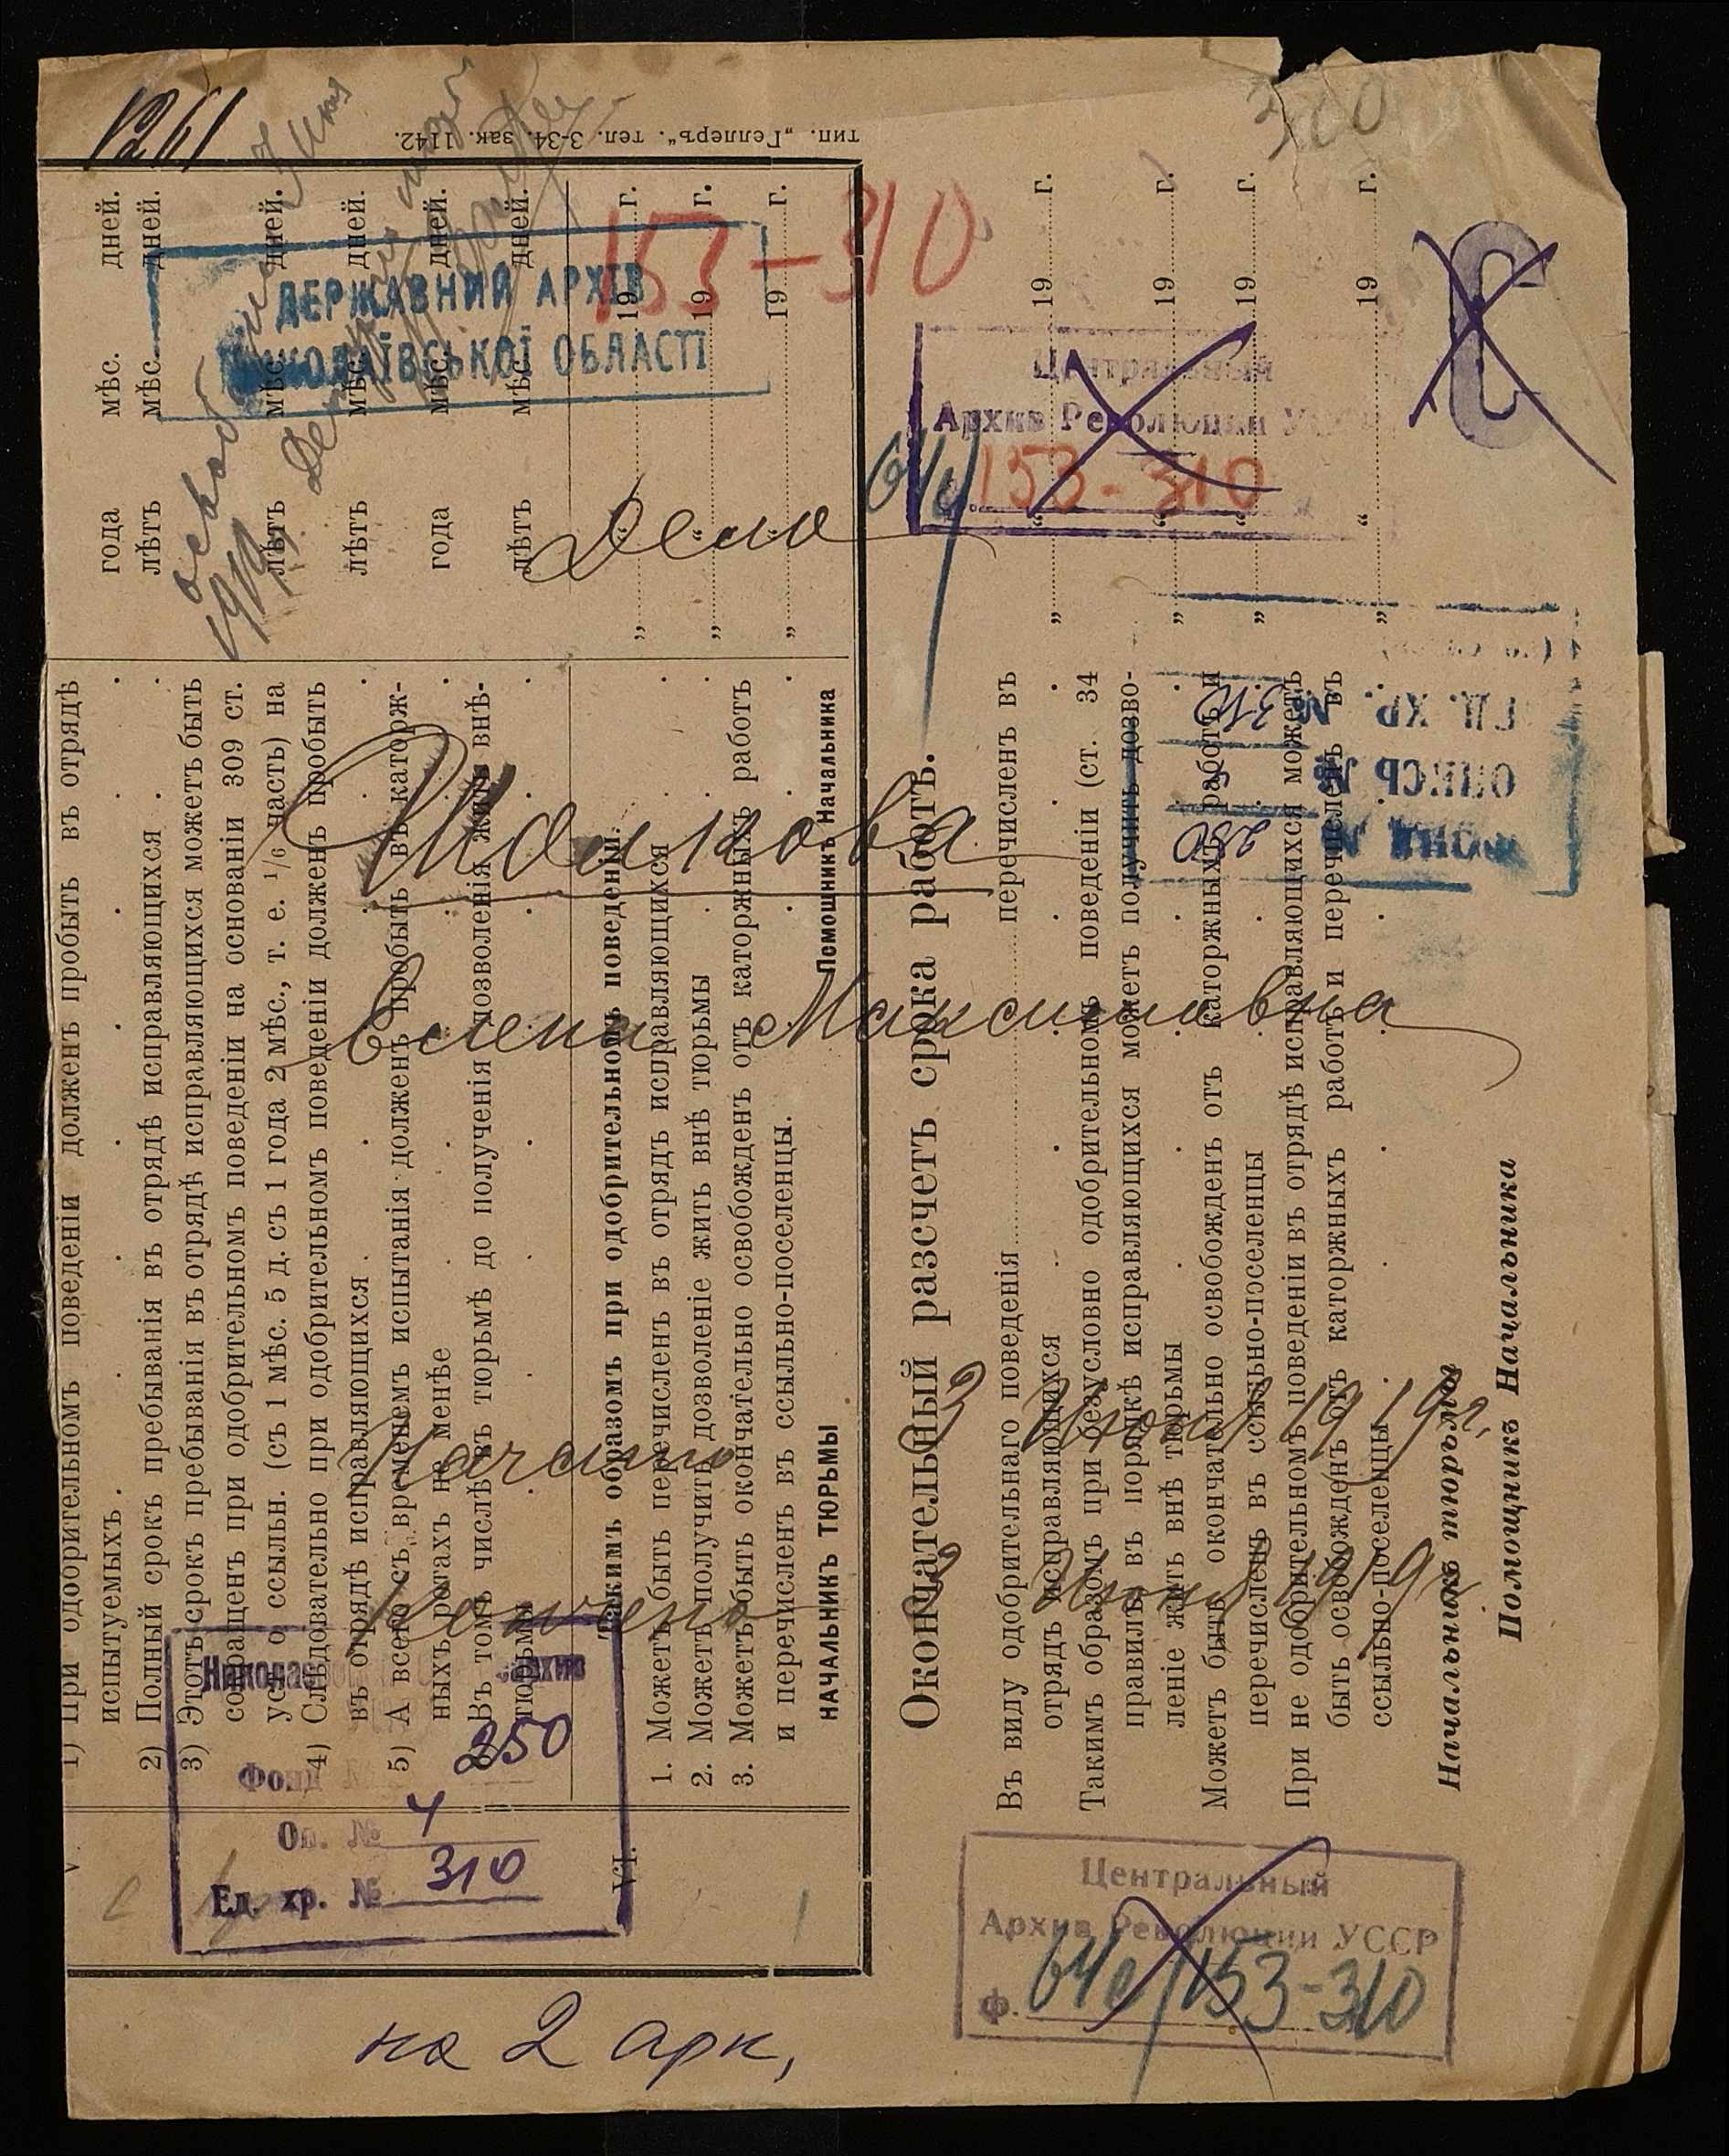 1261
300
тип. „Геллеръ“. тел. 3-34. зак. 1142.
1) При одобрительномъ поведеніи долженъ пробыть въ отрядѣ
испытуемыхъ . года мѣс. дней.
2) Полный срокъ пребыванія въ отрядѣ исправляющихся . лѣтъ мѣс. дней.
3) Этотъ срокъ пребыванія въ отрядѣ исправляющихся можетъ быть
сокращенъ при одобрительномъ поведеніи на основаніи 309 ст.
уст. о ссыльн. (съ 1 мѣс. 5 д. съ 1 года 2 мѣс., т. е. 1/6 часть) на лѣтъ мѣс. дней.
4) Слѣдовательно при одобрительномъ поведеніи долженъ пробыть
въ отрядѣ исправляющихся . лѣтъ мѣс. дней.
5) А всего съ временемъ испытанія долженъ пробыть въ каторж-
ныхъ работахъ не менѣе года мѣс. дней.
Въ томъ числѣ въ тюрьмѣ до полученія дозволенія жить внѣ-
тюрьмы лѣтъ мѣс. дней.
VI.
Такимъ образомъ при одобрительномъ поведеніи.
1. Можетъ быть перечисленъ въ отрядъ исправляющихся „ “ 19 г.
2. Можетъ получить дозволеніе жить внѣ тюрьмы „ “ 19 г.
3. Можетъ быть окончательно освобожденъ отъ каторжныхъ работъ
и перечисленъ въ ссыльно-поселенцы. „ “ 19 г.
НАЧАЛЬНИКЪ ТЮРЬМЫ Помощникъ Начальника
Окончательный разсчетъ срока работъ.
Въ виду одобрительнаго поведенія перечисленъ въ
отрядъ исправляющихся „ “ 19 г.
Такимъ образомъ при безусловно одобрительномъ поведеніи (ст. 34
правилъ въ порядкѣ исправляющихся можетъ получить дозво-
леніе жить внѣ тюрьмы „ “ 19 г.
Можетъ быть окончательно освобожденъ отъ каторжныхъ работъ и
перечисленъ въ ссыльно-поселенцы „ “ 19 г.
При не одобрительномъ поведеніи въ отрядѣ исправляющихся можетъ
быть освобожденъ отъ каторжныхъ работъ и перечисленъ въ
ссыльно-поселенцы „ “ 19 г.
Начальникъ тюрьмы
Помощникъ Начальника
ДЕРЖАВНИЙ АРХІВ
МИКОЛАЇВСЬКОЇ ОБЛАСТІ
153-310
Центральный
Архив Революции УССР
153-310
Дело
Елена Максимовна
Начато 3 Июня 1919 г.
Кончено 3 Июня 1919 г.
ФОНД № 250
ОПИСЬ №
ЕД. ХР. № 312
Фонд № 250
Оп. № 4
Ед. хр. № 310
Центральный
Архив Революции УССР
Ф. 64с/153-310
на 2 арк,